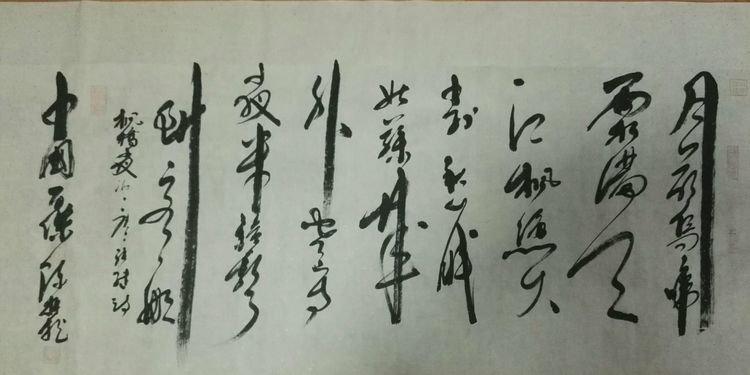 月落烏啼
霜滿天
江楓漁火
對愁眠
姑蘇城
外寒山寺
夜半鐘聲
到客船
楓橋夜泊唐張繼詩
中國